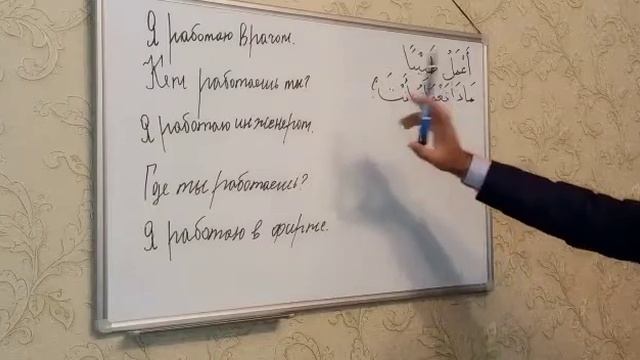 Я работаю врачом.
Кем работаешь ты?
Я работаю инженером.
Где ты работаешь?
Я работаю в фирме.
أَعْمَلُ طَبِيْبًا
مَاذَا تَعْمَلُ أَنْتَ؟